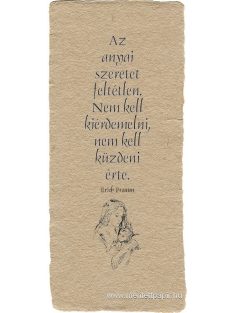 Az
anyai
szeretet
feltétlen.
Nem kell
kiérdemelni,
nem kell
küzdeni
érte.
Erich Fromm